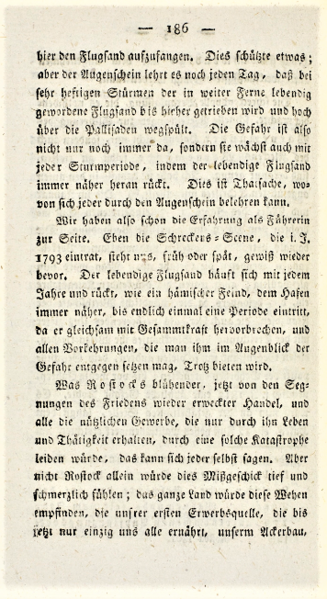 — 186 —
hier den Flugsand aufzufangen. Dies schützte etwas;
aber der Augenschein lehrt es noch jeden Tag, daß bei
sehr heftigen Stürmen der in weiter Ferne lebendig
gewordene Flugsand bis hieher getrieben wird und hoch
über die Pallisaden wegspült. Die Gefahr ist also
nicht nur noch immer da, sondern sie wächst auch mit
jeder Sturmperiode, indem der lebendige Flugsand
immer näher heran rückt. Dies ist Thatsache, wo-
von sich jeder durch den Augenschein belehren kann.
Wir haben also schon die Erfahrung als Führerin
zur Seite. Eben die Schreckens-Scene, die i. J.
1793 eintrat, steht uns, früh oder spät, gewiß wieder
bevor. Der lebendige Flugsand häuft sich mit jedem
Jahre und rückt, wie ein hämischer Feind, dem Hafen
immer näher, bis endlich einmal eine Periode eintritt,
da er gleichsam mit Gesammtkraft hervorbrechen, und
allen Vorkehrungen, die man ihm im Augenblick der
Gefahr entgegen setzen mag, Trotz bieten wird.
Was Rostocks blühender, jetzt von den Seg-
nungen des Friedens wieder erweckter Handel, und
alle die nützlichen Gewerbe, die nur durch ihn Leben
und Thätigkeit erhalten, durch eine solche Katastrophe
leiden würde, das kann sich jeder selbst sagen. Aber
nicht Rostock allein würde dies Mißgeschick tief und
schmerzlich fühlen; das ganze Land würde diese Wehen
empfinden, die unsrer ersten Erwerbsquelle, die bis
jetzt nur einzig uns alle ernährt, unserm Ackerbau,